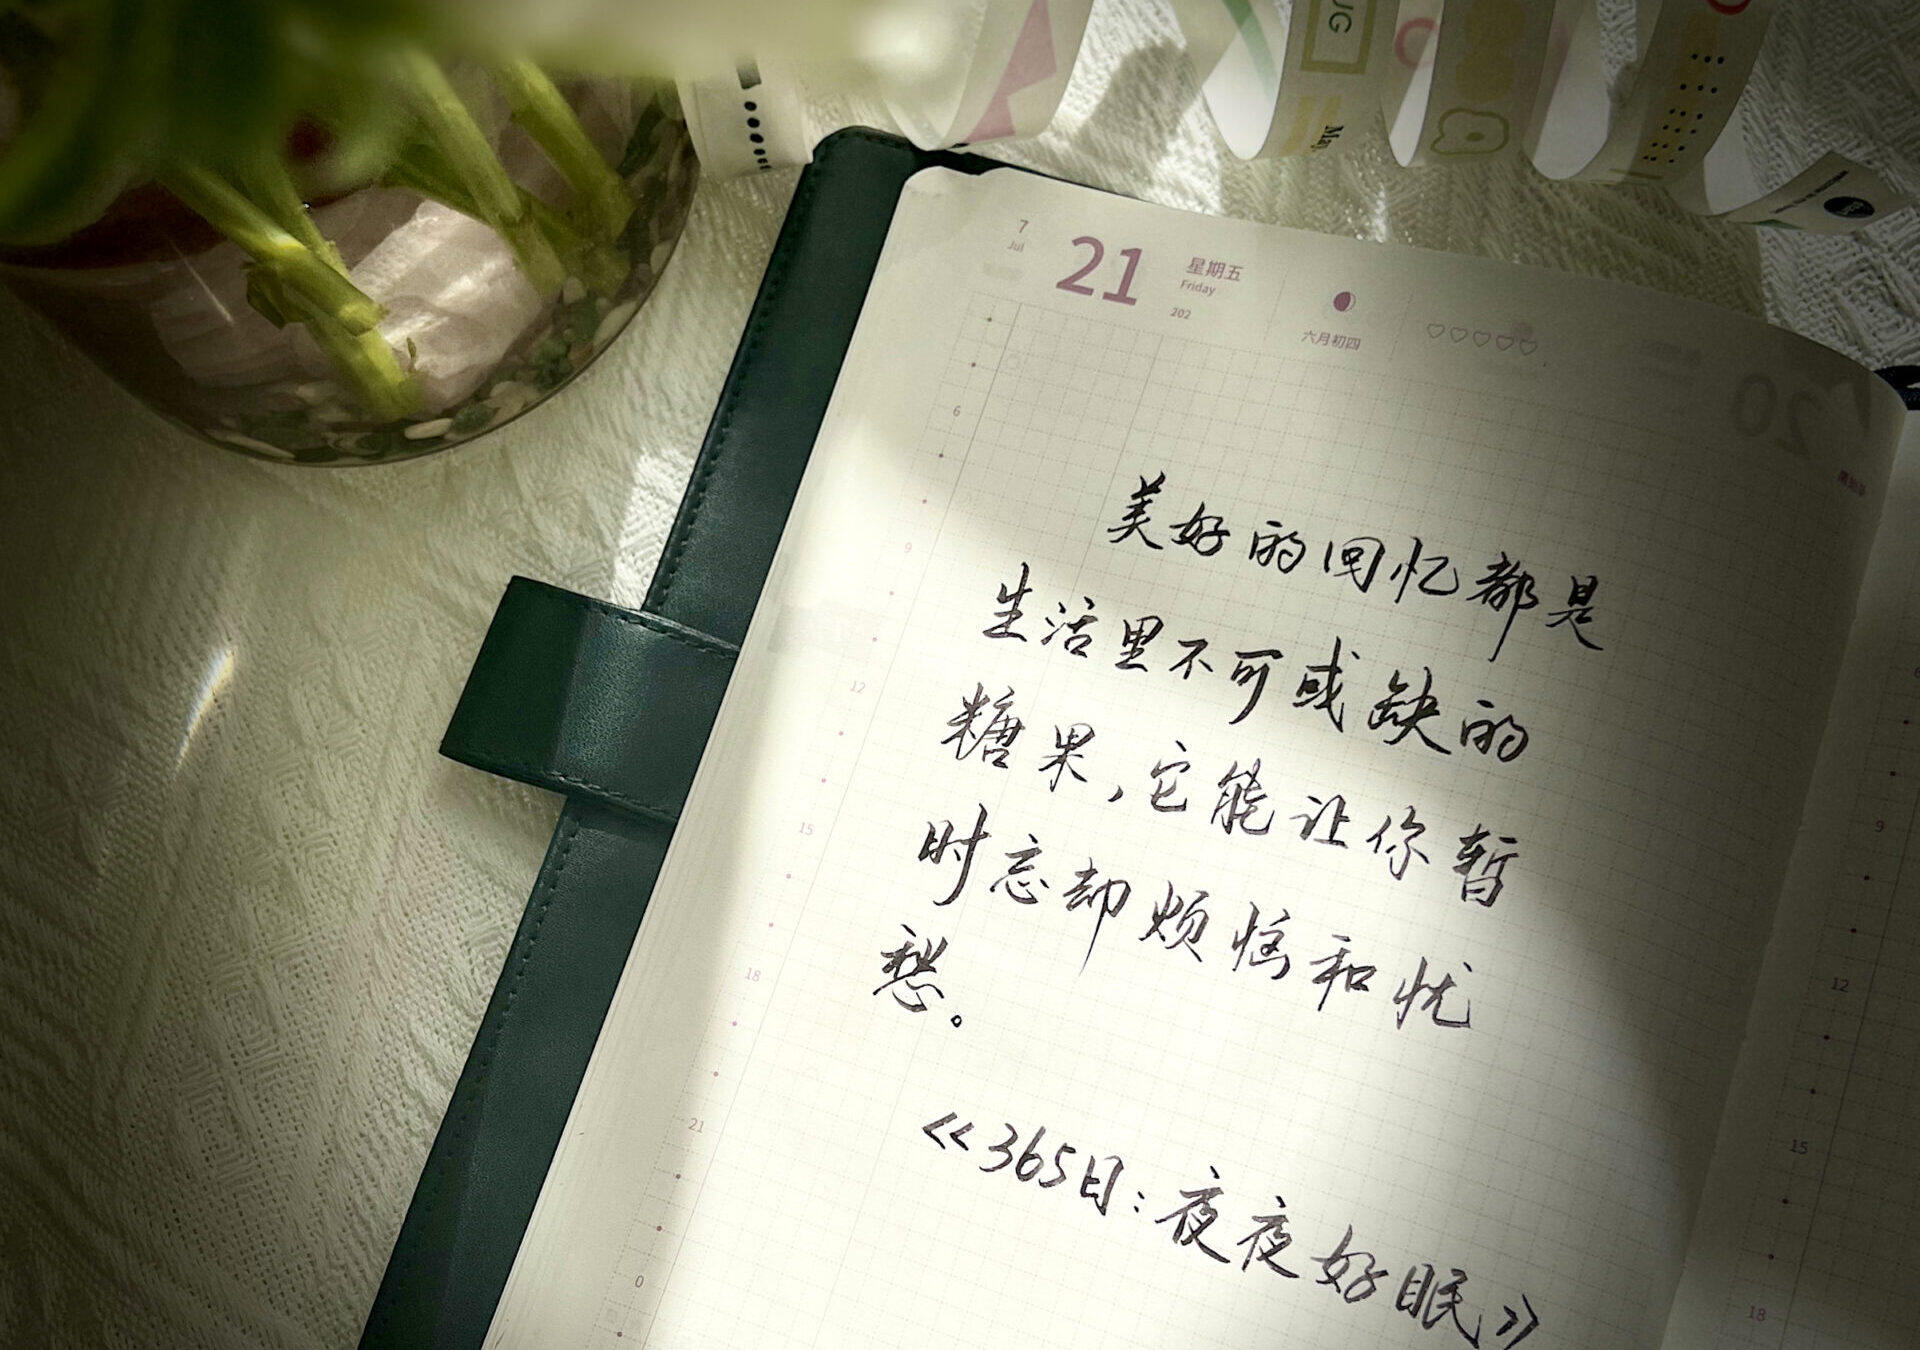 UG
May
7
Jul
21
星期五
Friday
202
六月初四
20
6
美好的回忆都是
9
生活里不可或缺的
12
糖果,它能让你暂
15
时忘却烦恼和忧
18
愁。
21
《365日:夜夜好眠》
0
9
12
15
18